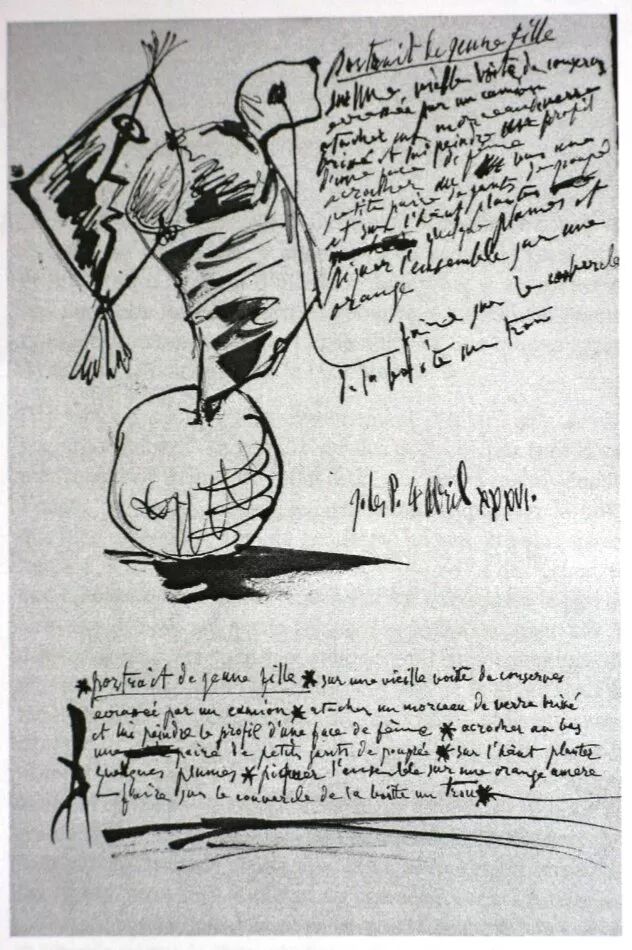 portrait de jeune fille
sur une vieille boite de conserves
ecrasée par un camion
atacher un morceau verre
brisé et lui peindre profil
d'une face de fème
acrocher au bas une
petite paire de gants de poupée
et sur l'hàut plantes
quelque plumes et
piquer l'ensemble sur une
orange
faire sur le couvercle
de la boite un trou
Juan les P. 4 Avril XXXVI.
*portrait de jeune fille * sur une vieille boite de conserves
ecrasée par un camion * atacher un morceau de verre brisé
et lui peindre le profil d'une face de fème * acrocher au bas
une paire de petits gants de poupée * sur l'hàut plantes
quelques plumes * piquer l'ensemble sur une orange amere
faire sur le couvercle de la boitte un trou *